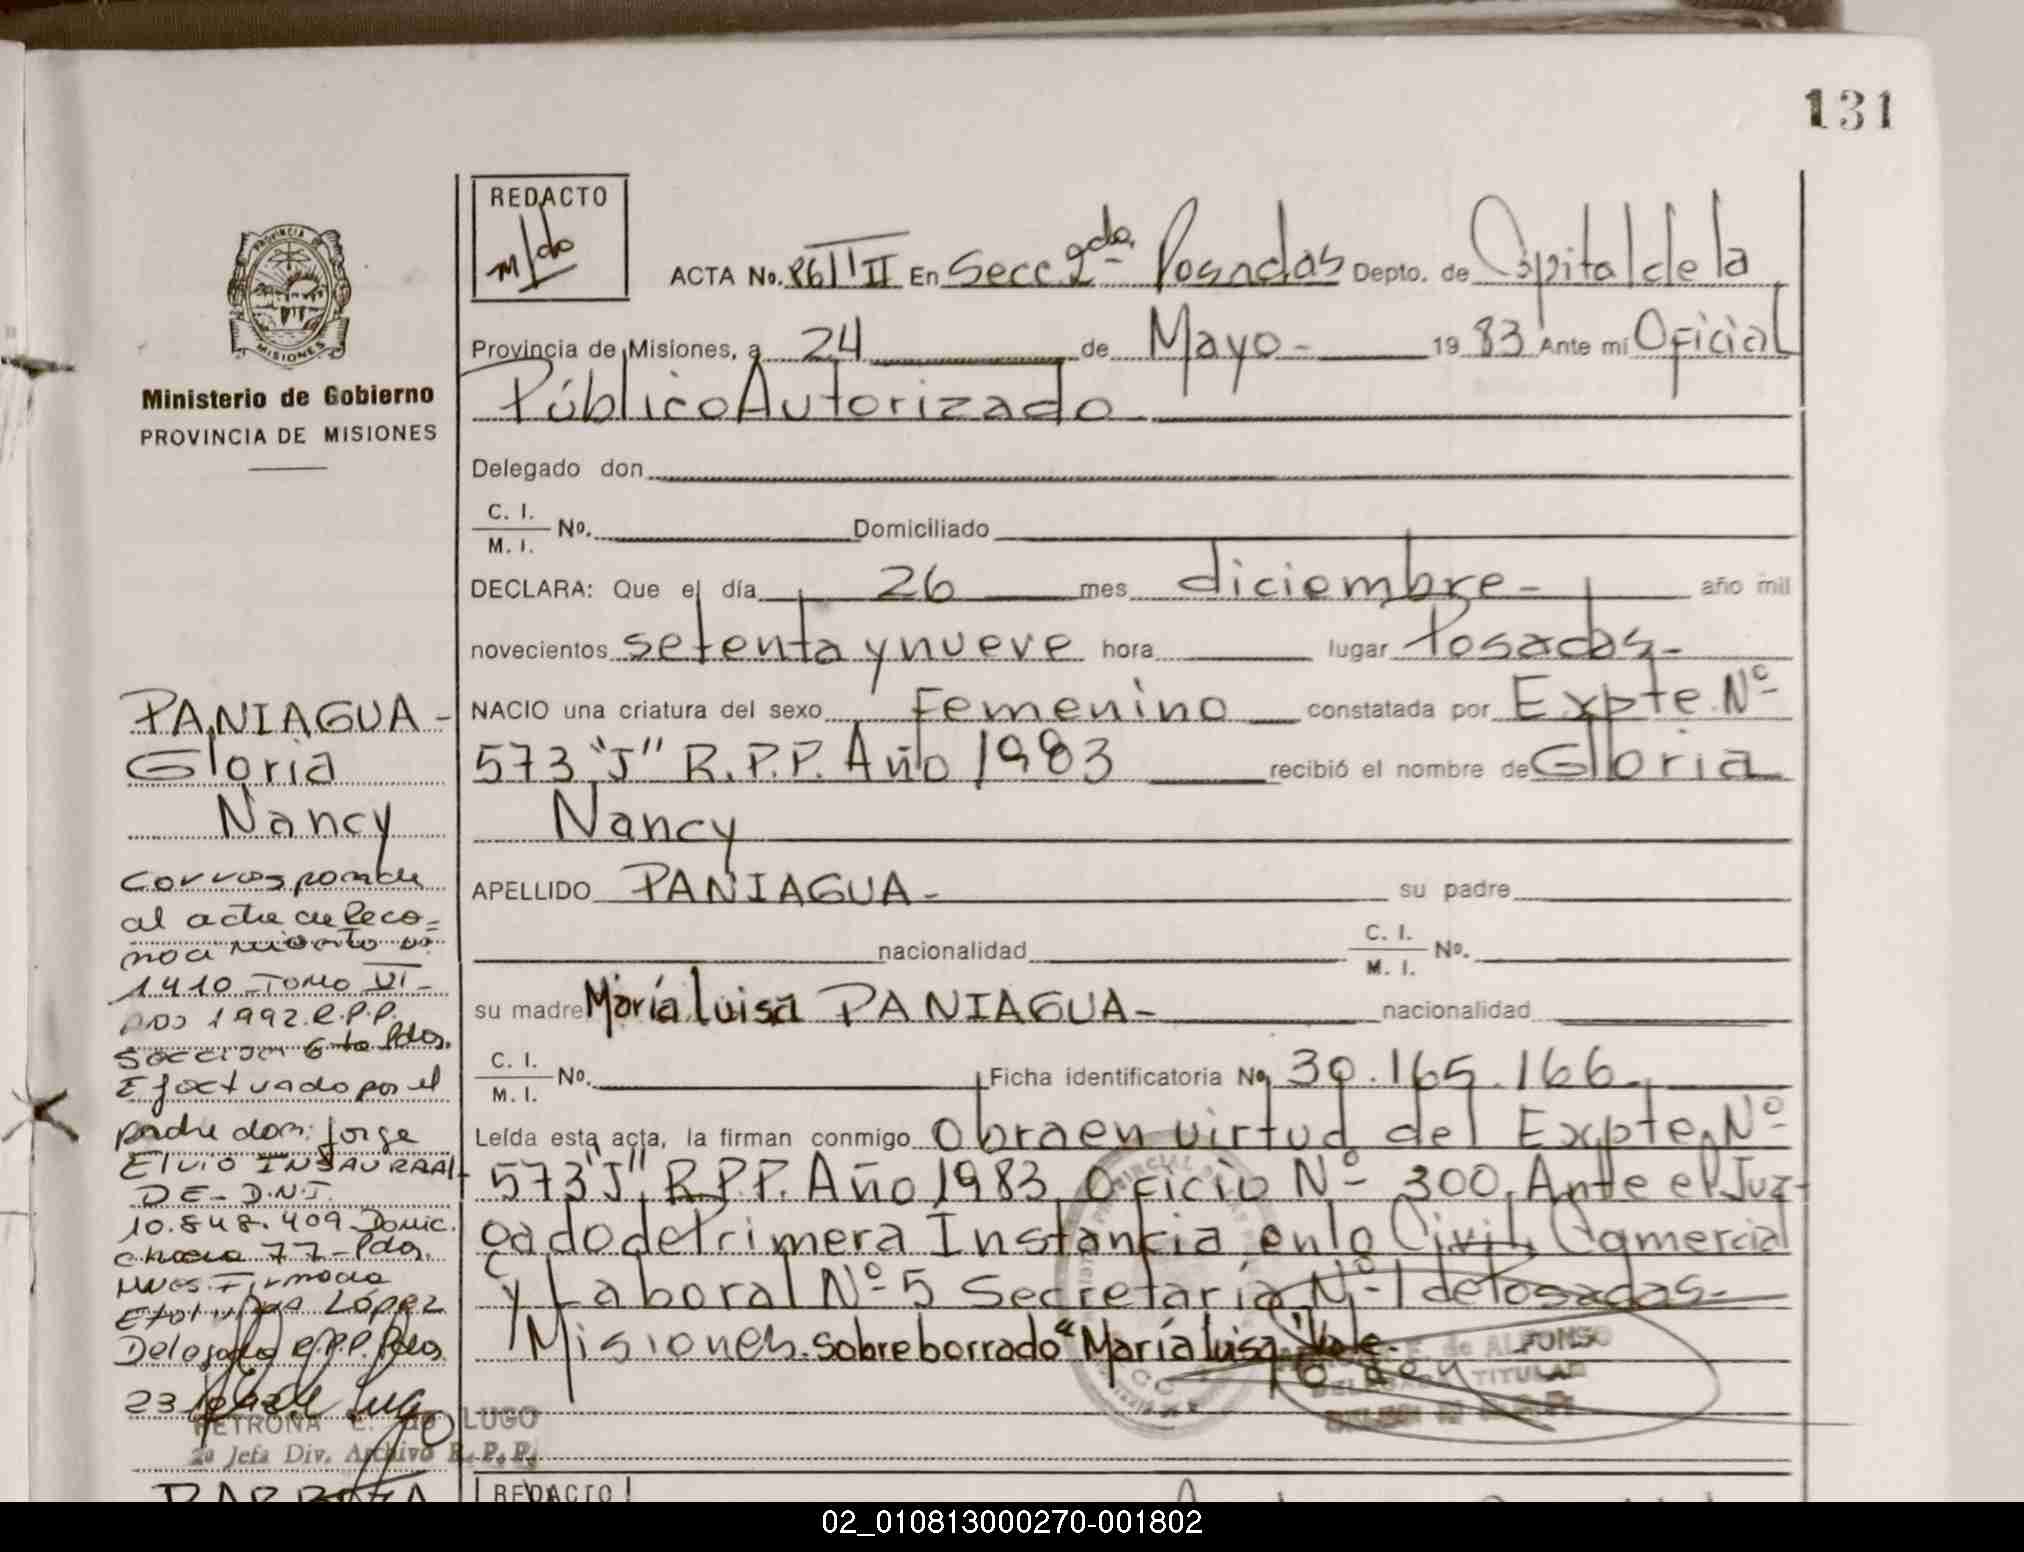 131
REDACTO
ACTA No. 861 II En Secc 2da. Posadas Depto. de Capital de la
PROVINCIA DE
MISIONES
Provincia de Misiones, a 24 de Mayo - 1983 Ante mi Oficial
Público Autorizado
Ministerio de Gobierno
PROVINCIA DE MISIONES
Delegado don
C. I.
M. I. No. Domiciliado
DECLARA: Que el día 26 mes diciembre - año mil
novecientos setenta y nueve hora lugar Posadas -
NACIO una criatura del sexo Femenino constatada por Expte. Nº
573 "J" R.P.P. Año 1983 recibió el nombre de Gloria
Nancy
APELLIDO PANIAGUA - su padre
nacionalidad C. I.
M. I. No.
su madre María Luisa PANIAGUA - nacionalidad
C. I.
M. I. No. Ficha identificatoria No. 30.165.166.
Leída esta acta, la firman conmigo obra en virtud del Expte. Nº
573 "J" R.P.P. Año 1983, Oficio Nº 300, Ante el Juz-
gado de Primera Instancia en lo Civil, Comercial
y Laboral Nº 5 Secretaría Nº 1 de Posadas -
Misiones. sobreborrado "María Luisa" Vale.
de ALFONSO
TITULAR
PANIAGUA -
Gloria
Nancy
Corresponde
al acta de Reco=
nocimiento nº
1410 - Tomo VI -
Año 1992. R.P.P.
Seccion 6ta Pdas.
Efectuado por el
padre don: Jorge
Elvio INSAURRAL
DE - D.N.I.
10.848.409 - Domic.
Chaco 77 - Pdas.
López
Delegada R.P.P. Pdas
PETRONA E. de LUGO
2º Jefa Div. Archivo R. P. P.
REDACTO
02_010813000270-001802